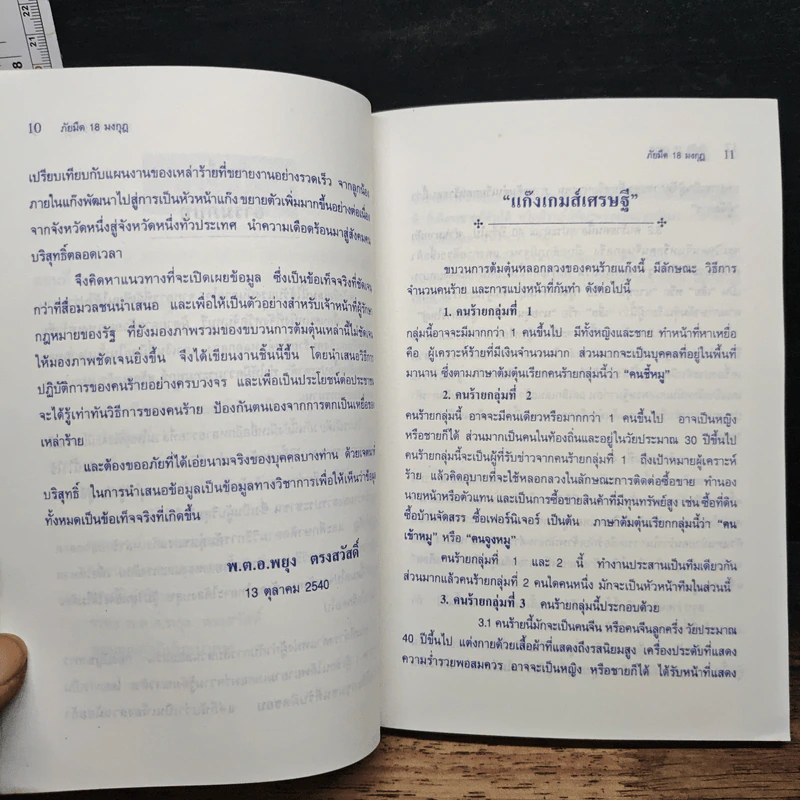 10 ภัยมืด 18 มงกุฎ
เปรียบเทียบกับแผนงานของเหล่าร้ายที่ขยายงานอย่างรวดเร็ว จากลูกน้อง
ภายในแก๊งพัฒนาไปสู่การเป็นหัวหน้าแก๊ง ขยายตัวเพิ่มมากขึ้นอย่างต่อเนื่อง
จากจังหวัดหนึ่งสู่จังหวัดหนึ่งทั่วประเทศ นำความเดือดร้อนมาสู่สังคมคน
บริสุทธิ์ตลอดเวลา
จึงคิดหาแนวทางที่จะเปิดเผยข้อมูล ซึ่งเป็นข้อเท็จจริงที่ชัดเจน
กว่าที่สื่อมวลชนนำเสนอ และเพื่อให้เป็นตัวอย่างสำหรับเจ้าหน้าที่ผู้รักษา
กฎหมายของรัฐ ที่ยังมองภาพรวมของขบวนการต้มตุ๋นเหล่านี้ไม่ชัดเจน
ให้มองภาพชัดเจนยิ่งขึ้น จึงได้เขียนงานชิ้นนี้ขึ้น โดยนำเสนอวิธีการ
ปฏิบัติการของคนร้ายอย่างครบวงจร และเพื่อเป็นประโยชน์ต่อประชาชน
จะได้รู้เท่าทันวิธีการของคนร้าย ป้องกันตนเองจากการตกเป็นเหยื่อของ
เหล่าร้าย
และต้องขออภัยที่ได้เอ่ยนามจริงของบุคคลบางท่าน ด้วยเจตนาที่
บริสุทธิ์ ในการนำเสนอข้อมูลเป็นข้อมูลทางวิชาการเพื่อให้เห็นว่าข้อมูล
ทั้งหมดเป็นข้อเท็จจริงที่เกิดขึ้น
พ.ต.อ.พยุง ตรงสวัสดิ์
13 ตุลาคม 2540
ภัยมืด 18 มงกุฎ 11
“แก๊งเกมส์เศรษฐี”
ขบวนการต้มตุ๋นหลอกลวงของคนร้ายแก๊งนี้ มีลักษณะ วิธีการ
จำนวนคนร้าย และการแบ่งหน้าที่กันทำ ดังต่อไปนี้
1. คนร้ายกลุ่มที่ 1
กลุ่มนี้อาจจะมีมากกว่า 1 คนขึ้นไป มีทั้งหญิงและชาย ทำหน้าที่หาเหยื่อ
คือ ผู้เคราะห์ร้ายที่มีเงินจำนวนมาก ส่วนมากจะเป็นบุคคลที่อยู่ในพื้นที่
มานาน ซึ่งตามภาษาต้มตุ๋นเรียกคนร้ายกลุ่มนี้ว่า “คนชี้หมู”
2. คนร้ายกลุ่มที่ 2
คนร้ายกลุ่มนี้ อาจจะมีคนเดียวหรือมากกว่า 1 คนขึ้นไป อาจเป็นหญิง
หรือชายก็ได้ ส่วนมากเป็นคนในท้องถิ่นและอยู่ในวัยประมาณ 30 ปีขึ้นไป
คนร้ายกลุ่มนี้จะเป็นผู้ที่รับข่าวจากคนร้ายกลุ่มที่ 1 ถึงเป้าหมายผู้เคราะห์
ร้าย แล้วคิดอุบายที่จะใช้หลอกลวงในลักษณะการติดต่อซื้อขาย ทำนอง
นายหน้าหรือตัวแทน และเป็นการซื้อขายสินค้าที่มีทุนทรัพย์สูง เช่น ซื้อที่ดิน
ซื้อบ้านจัดสรร ซื้อเฟอร์นิเจอร์ เป็นต้น ภาษาต้มตุ๋นเรียกกลุ่มนี้ว่า “คน
เข้าหมู” หรือ “คนจูงหมู”
คนร้ายกลุ่มที่ 1 และ 2 นี้ ทำงานประสานเป็นทีมเดียวกัน
ส่วนมากแล้วคนร้ายกลุ่มที่ 2 คนใดคนหนึ่ง มักจะเป็นหัวหน้าทีมในส่วนนี้
3. คนร้ายกลุ่มที่ 3 คนร้ายกลุ่มนี้ประกอบด้วย
3.1 คนร้ายนี้มักจะเป็นคนจีน หรือคนจีนลูกครึ่ง วัยประมาณ
40 ปีขึ้นไป แต่งกายด้วยเสื้อผ้าที่แสดงถึงรสนิยมสูง เครื่องประดับที่แสดง
ความร่ำรวยพอสมควร อาจจะเป็นหญิง หรือชายก็ได้ ได้รับหน้าที่แสดง